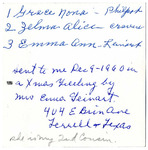 1 Grace Nona - Philpot
2 Zelma Alice -
3 Emma Ann - Reinert
sent to me Dec 9-1960 in
a Xmas Greeting by
Mrs Emma Reinert
404 E Brin Ave
Terrell, Texas
she is my 2nd Cousin.